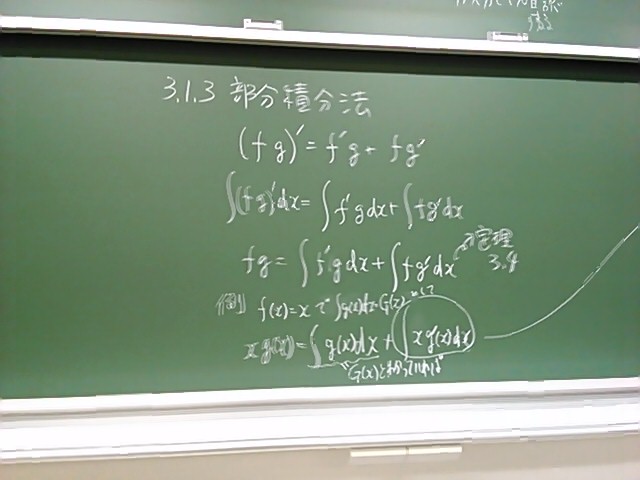 3.1.3 部分積分法
(fg)' = f'g + fg'
∫(fg)'dx = ∫f'g dx + ∫fg'dx
fg = ∫f'g dx + ∫fg'dx 定理 3.4
例) f(x)=x で ∫g(x)dx=G(x) として
x g(x) = ∫g(x)dx + ∫x g'(x)dx
G(x)とわかっていれば